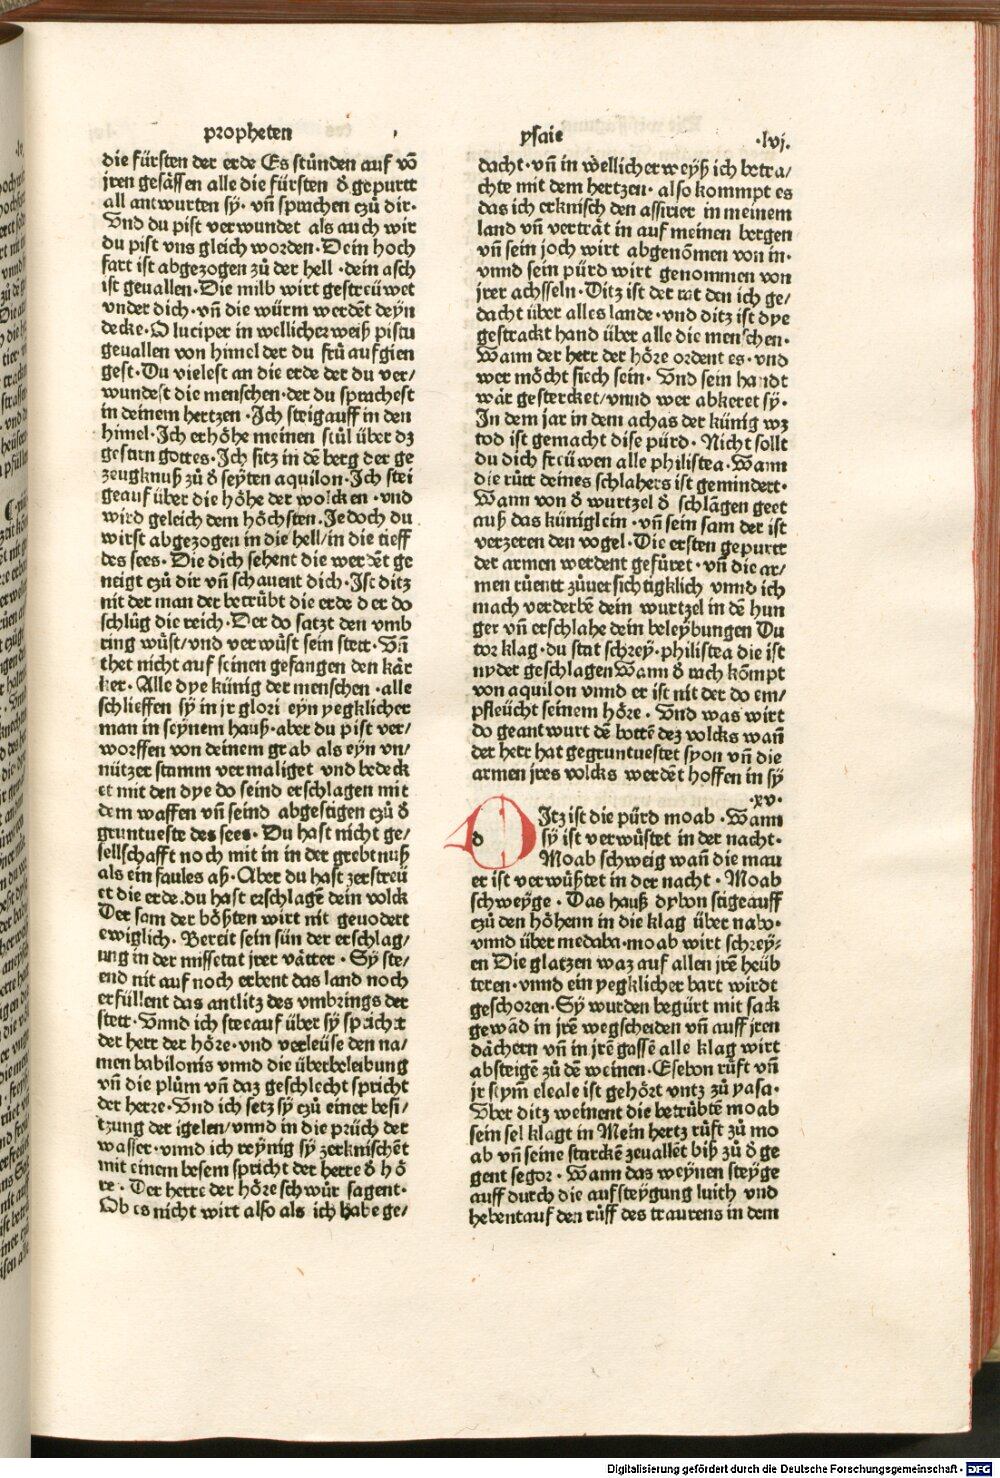 propheten
ysaie
.lvj.
die fürsten der erde Es stůnden auf võ
jren gesässen alle die fürsten d̕ gepurtt
all antwurten sÿ· vñ sprachen czů dir·
Vnd du pist verwundet als auch wir
du pist vns gleich worden·Dein hoch
fart ist abgezogen zů der hell ·dein asch
ist geuallen·Die milb wirt gestreüwet
vnder dich·vñ die würm werdẽt deÿn
decke·O luciper in wellicher weiß pistu
geuallen von himel der du frů aufgien
gest·Du vielest an die erde der du ver/
wundest die menschen·der du sprachest
in deinem hertzen ·Ich steigauff in den
himel·Ich erhöhe meinen stůl über dz
gestirn gottes·Ich sitz in dẽ berg der ge
zeugknuß zů d̕ seÿten aquilon·Ich stei
geauf über die höhe der wolcken ·vnd
wird geleich dem höchsten·Jedoch du
wirst abgezogen in die hell/in die tieff
des sees·Die dich sehent die werdẽt ge
neigt czů dir vñ schauent dich·Ist ditz
nit der man der betrübt die erde der do
schlůg die reich·Der do satzt den vmb
ring wůst/vnd verwůst sein stett·Vñ
thet nicht auf seinen gefangen den kär
ker·Alle dye künig der menschen ·alle
schlieffen sÿ in jr glori eyn yegklicher
man in seÿnem hauß·aber du pist ver/
worffen von deinem grab als eÿn vn/
nützer stamm vermaliget vnd bedeck
et mit den dye do seind erschlagen mit
dem waffen vñ seind abgestigen czů d̕
gruntueste des sees·Du hast nicht ge/
sellschafft noch mit in in der grebtnuß
als ein faules aß·Aber du hast zerstreü
et die erde·du hast erschlagẽ dein volck
Der sam der bößten wirt nit geuodert
ewiglich·Bereit sein sün der erschlag/
ung in der missetat jrer vätter·Sÿ ste/
end nit auf noch erbent das land noch
erfüllent das antlitz des vmbrings der
stett·Vnnd ich steeauf über sÿ spricht
der herr der höre·vnd verleüse den na/
men babilonis vnnd die überbeleibung
vñ die plům vñ daz geschlecht spricht
der herre·Vnd ich setz sÿ czů einer besi/
tzung der igelen/vnnd in die prüch der
wasser·vnnd ich reÿnig sÿ zerknischẽt
mit einem besem spricht der herre d̕ hö
re·Der herre der höre schwůr sagent·
Ob es nicht wirt also als ich habe ge/
dacht·vñ in wellicher weÿß ich betra/
chte mit dem hertzen·also kompt es
das ich erknisch den assirier in meinem
land vñ verträt in auf meinen bergen
vñ sein joch wirt abgenõmen von in·
vnnd sein pürd wirt genommen von
jrer achsseln·Ditz ist der rat den ich ge/
dacht über alles lande·vnd ditz ist dye
gestrackt hand über alle die menschen·
Wann der herr der höre ordent es·vnd
wer möcht siech sein·Vnd sein handt
wär gestercket/vnnd wer abkeret sÿ·
In dem jar in dem achas der künig wz
tod ist gemacht dise pürd·Nicht sollt
du dich freüwen alle philistea·Wann
die růtt deines schlahers ist gemindert·
Wann von d̕ wurtzel d̕ schlãgen geet
auß das küniglein·vñ sein sam der ist
verzeren den vogel·Die ersten gepurtt
der armen werdent gefüret·vñ die ar/
men rüentt zůuersichtigklich vnnd ich
mach verderbẽ dein wurtzel in dẽ hun
ger vñ erschlahe dein beleÿbungen Du
tor klag·du stat schreÿ·philistea die ist
nyder geschlagen Wann d̕ rach kõmpt
von aquilon vnnd er ist nit der do em/
pfleücht seinem höre·Vnd was wirt
do geantwurt dẽ bottẽ dez volcks wañ
der herr hat gegruntuestet syon vñ die
armen jres volcks werdẽt hoffen in sÿ
·xv·
DItz ist die pürd moab·Wann
sÿ ist verwůstet in der nacht·
Moab schweig wañ die mau
er ist verwůßtet in der nacht·Moab
schweÿge·Das hauß dybon stigeauff
czů den höhenn in die klag über nabo·
vnnd über medaba·moab wirt schreÿ/
en Die glatzen waz auf allen jrẽ heüb
teren·vnnd ein yegklicher bart wirdt
geschoren·Sÿ wurden begürt mit sack
gewãd in jrẽ wegscheiden vñ auff jren
dächern vñ in jrẽ gassẽ alle klag wirt
absteigẽ zů dẽ weinen·Esebon růft vñ
jr stym̃ eleale ist gehört vntz zů yasa·
Vber ditz weinent die betrübtẽ moab
sein sel klagt in Mein hertz růft zů mo
ab vñ seine starckẽ zeuallẽt biß zů d̕ ge
gent segor·Wann das weÿnen steÿge
auff durch die aufsteÿgung luith vnd
hebentauf den růff des traurens in dem
Digitalisierung gefördert durch die Deutsche Forschungsgemeinschaft - DFG